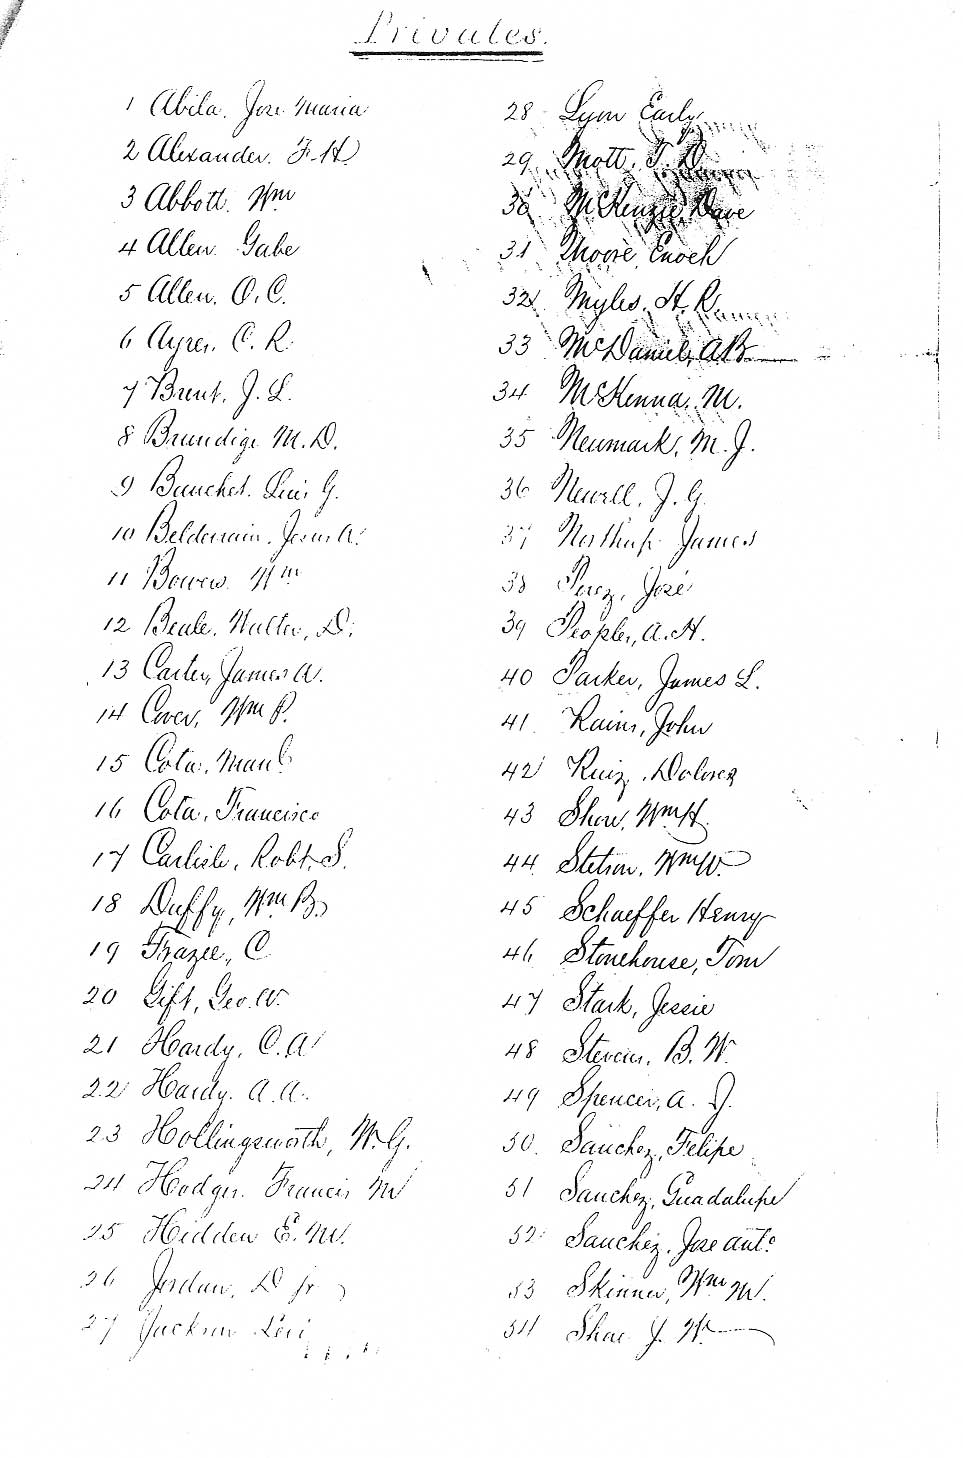 Privates.
1 Abila. Jose Maria
2 Alexander. F. H
3 Abbott. Wm
4 Allen Gabe
5 Allen. O. C.
6 Ayres, C. R.
7 Brent, J. L.
8 Brundige M. D.
9 Bauchet. Luis G.
10 Belderrain. Jesus A.
11 Bowers. Wm
12 Beale. Walter, D.
13 Carter, James A.
14 Cover, Wm P.
15 Cota. Manl
16 Cota, Francisco
17 Carlisle, Robt, S.
18 Duffy, Wm B.
19 Frazee, C
20 Gift, Geo. W.
21 Hardy, C. A
22 Hardy. A. A.
23 Hollingsworth, W. G.
24 Hodges. Francis M
25 Hidden E. M.
26 Jordan. D Jr
27 Jackson Levi
28 Lyon Early
29 Mott. T. D
30 McKenzie, Dave
31 Moore, Enoch
32 Myles. H. R.
33 McDaniel, A B
34 McKenna, M.
35 Neumark, M. J.
36 Newell, J. G.
37 Northup James
38 Perez, José
39 Peoples, A. H.
40 Parker, James L.
41 Rains, John
42 Ruiz, Dolores
43 Shore, Wm H.
44 Stetson, Wm W.
45 Schaeffer Henry
46 Stonehouse, Tom
47 Stark, Jessie
48 Stevens, B. W.
49 Spencer, A. J.
50 Sanchez, Felipe
51 Sanchez, Guadalupe
52 Sanchez, Jose Anto
53 Skinner, Wm M.
54 Shore J. W.